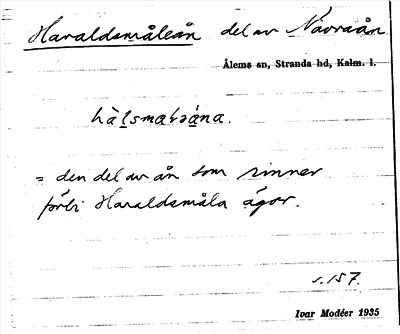 Haraldsmåleån del av Navraån
Ålems sn, Stranda hd, Kalm. l.
= den del av ån som rinner
förbi Haraldsmåla ägor.
s. 157.
Ivar Modéer 1935